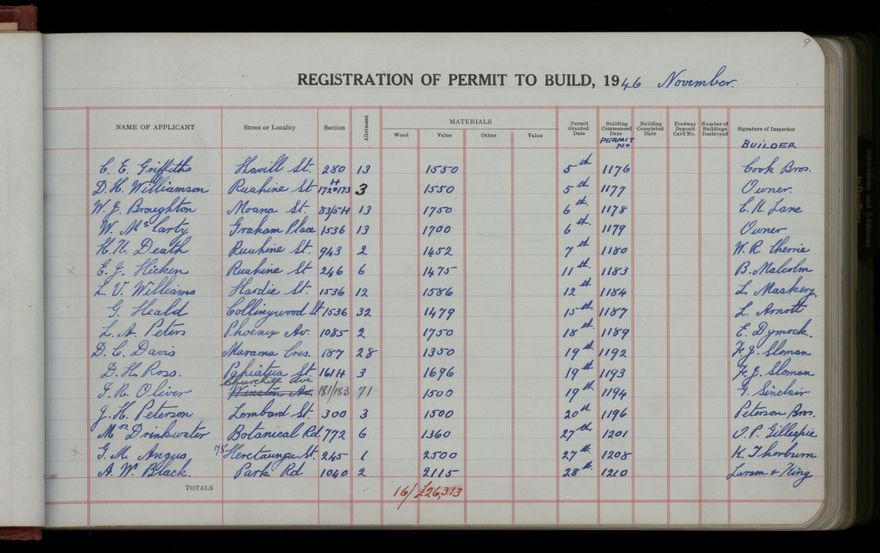 9
REGISTRATION OF PERMIT TO BUILD, 1946 November.
NAME OF APPLICANT Street or Locality Section Allotment MATERIALS Wood Value Other Value Permit Granted Date Building Commenced Date PERMIT No Building Completed Date Footway Deposit Card No. Number of Buildings Destroyed Signature of Inspector BUILDER
C. E. Griffiths Havill St. 280 13 1550 5th 1176 Cook Bros.
D. H. Williamson Ruahine St 3 1550 5th 1177 Owner.
W. J. Broughton Moana St. 83/54 13 1750 6th 1178 C. N. Lane
W. McCarty Graham Place 1536 13 1700 6th 1179 Owner
H. N. Death Ruahine St. 943 2 1452 7th 1180 W. R.
x E. J. Hicken Ruahine St 246 6 1475 11th 1183 B. Malcolm
L. V. Williams Hardie St. 1536 12 1586 12th 1184 L. Maskery
G. Heald Collingwood St 1536 32 1479 15th 1187 L. Arnott
L. A. Peters Phoenix Av. 1085 2 1750 18th 1189 E. Dymock.
D. C. Davis Marama Cres. 187 28 1350 19th 1192 H. J. Sloman
D. H. Ross. Pahiatua St. 1614 3 1696 19th 1193 H. J. Sloman
Churchill Ave
J. R. Oliver Winston Av. 181/183 71 1500 19th 1194 G. Sinclair
J. H. Peterson Lombard St. 300 3 1500 20th 1196 Peterson Bros.
Mrs Drinkwater Botanical Rd 772 6 1360 27th 1201 O. P. Gillespie
x G. M. Angus 75 Heretaunga St. 245 1 2500 27th 1208 K. Thorburn
A. W. Black. Park Rd 1040 2 2115 28th 1210 Larsen & King
TOTALS 16/ £26,313